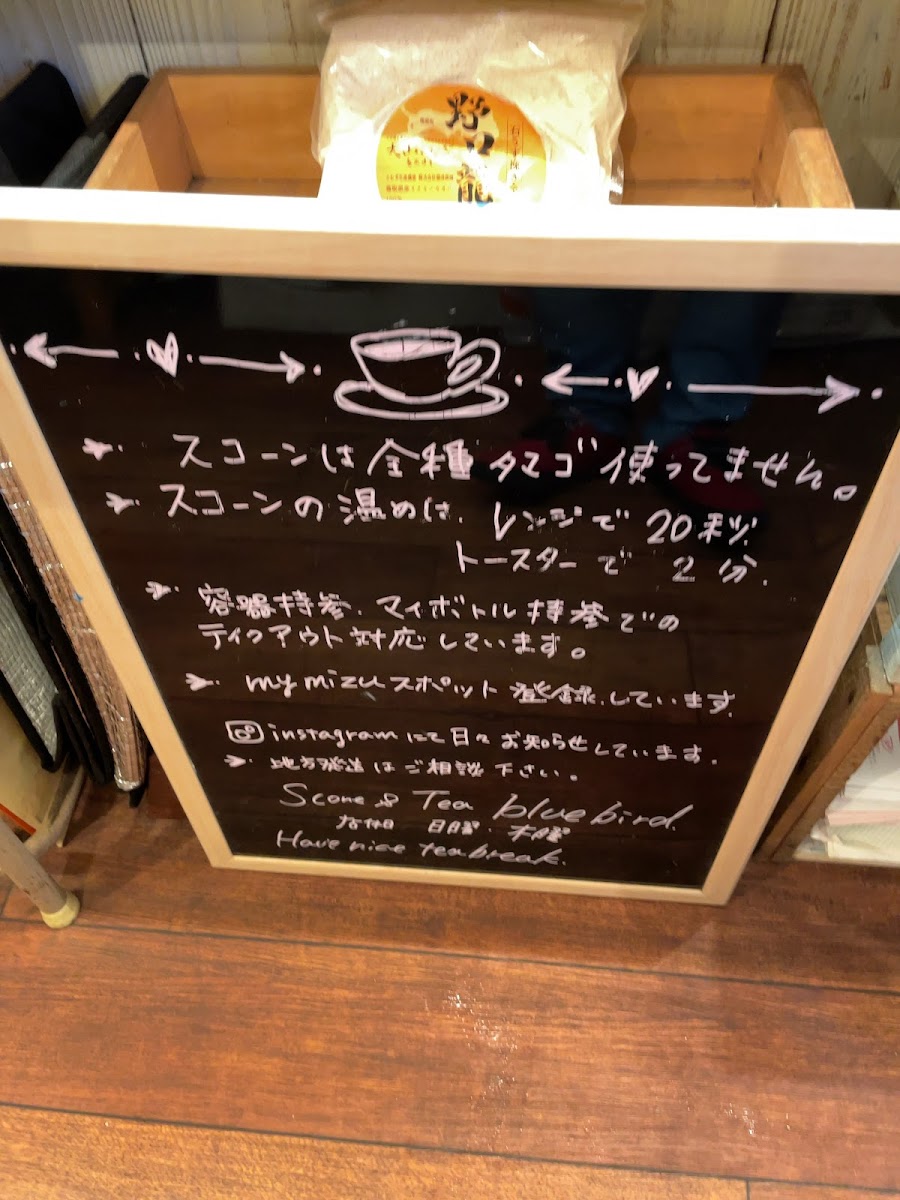 スコーンは全種タマゴ使ってません。
スコーンの温めは、レンジで 20秒
トースターで 2分.
容器持参、マイボトル持参での
テイクアウト対応しています。
mymizuスポット登録しています
instagramにて日々お知らせしています.
地方発送はご相談下さい。
Scone & Tea bluebird.
定休日 日曜・木曜
Have nice teabreak.